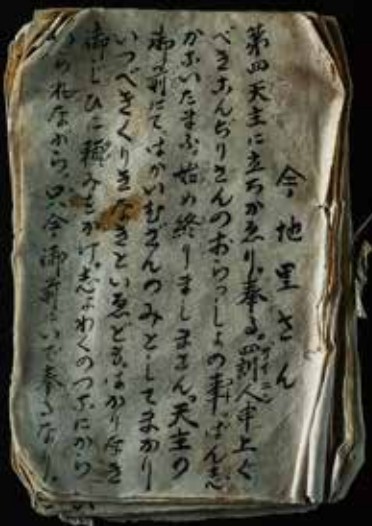 今地里さん
第四天主に立ちかゑり奉る。罪人申上ぐ
べきこんちりさんのおらつしよの事。ばん志
かないたまふ、始め終りましまさん。天主の
御前にてはかいむざんのみとしてまかり
いつべきくりきなきといゑども、はかり好き
御じひに頼みをかけ、志よわくのつみにから
められながら、只今御前にいで奉るなり。